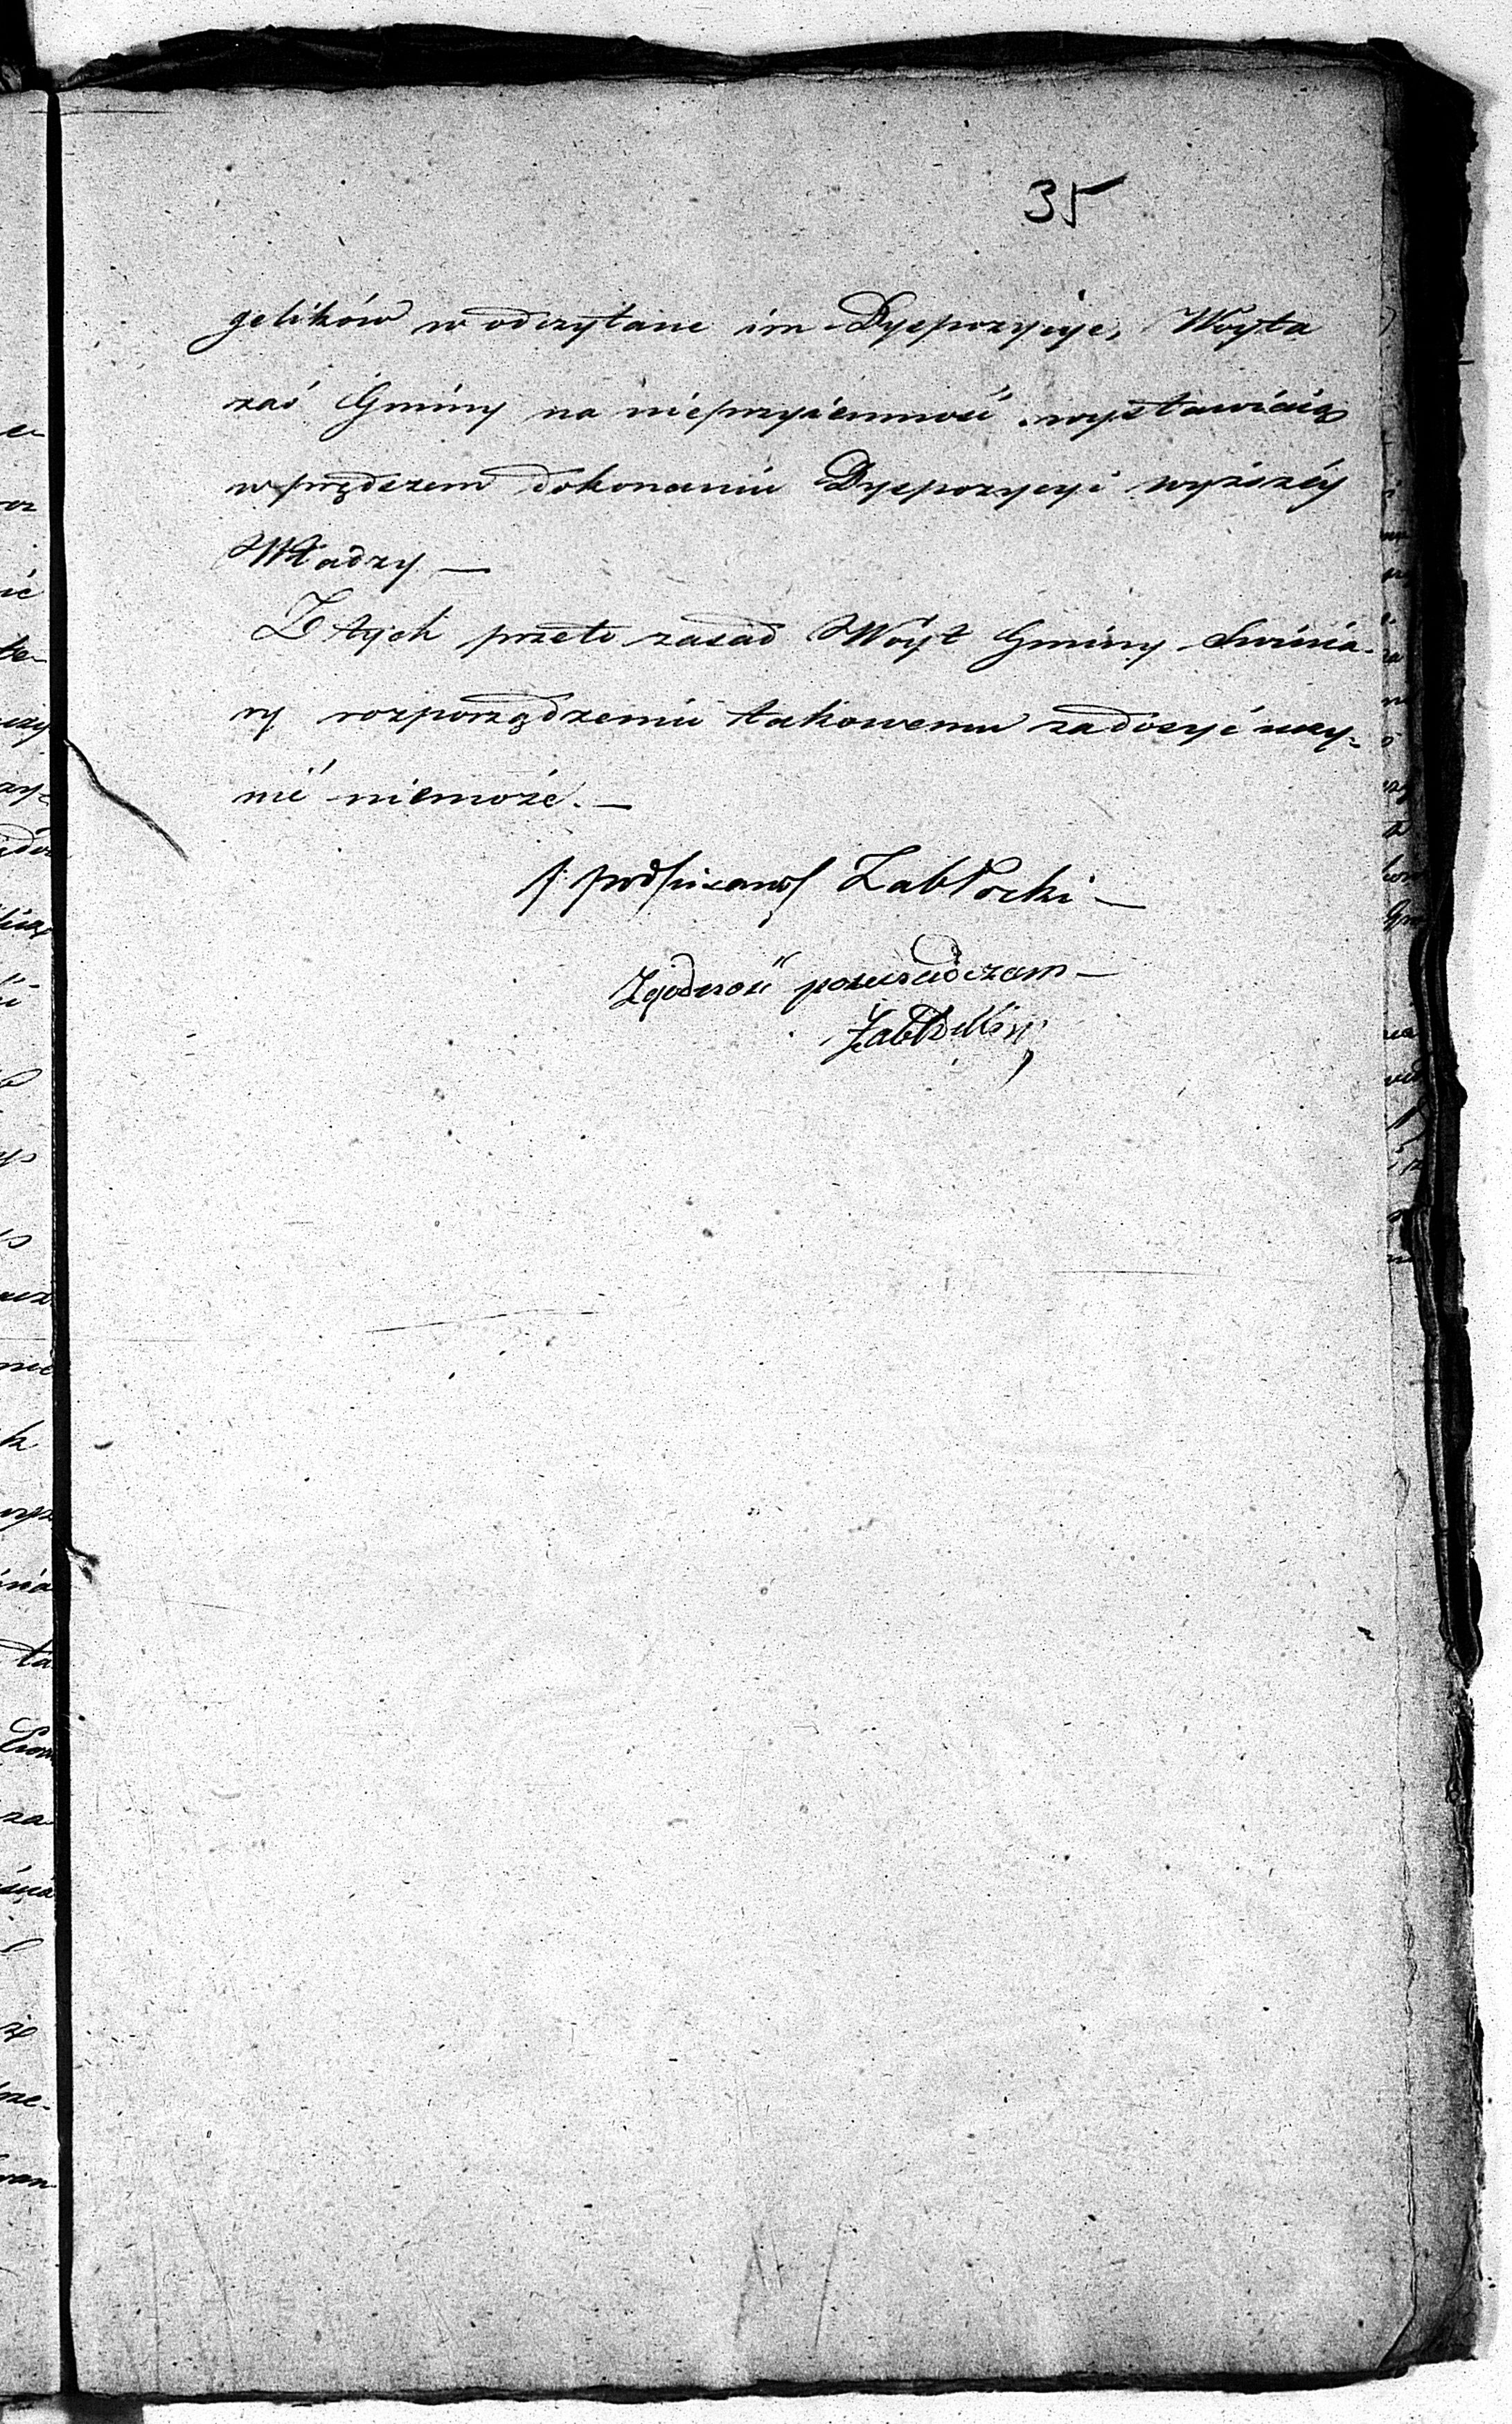 35
gelików w odczytane im Dyspozycye, Woyta
zaś Gminy na nieprzyiemność wystawiaią
w prędszem dokonaniu Dyspozycyi wyższéy
Władzy —
Z tych przeto zasad Wóyt Gminy Swinia-
ry rozporządzeniu takowemu zadosyć uczy-
nić niemoże. —
/ podpisano / Zabłocki —
Zgodność poswiadczam —
Zabłocki